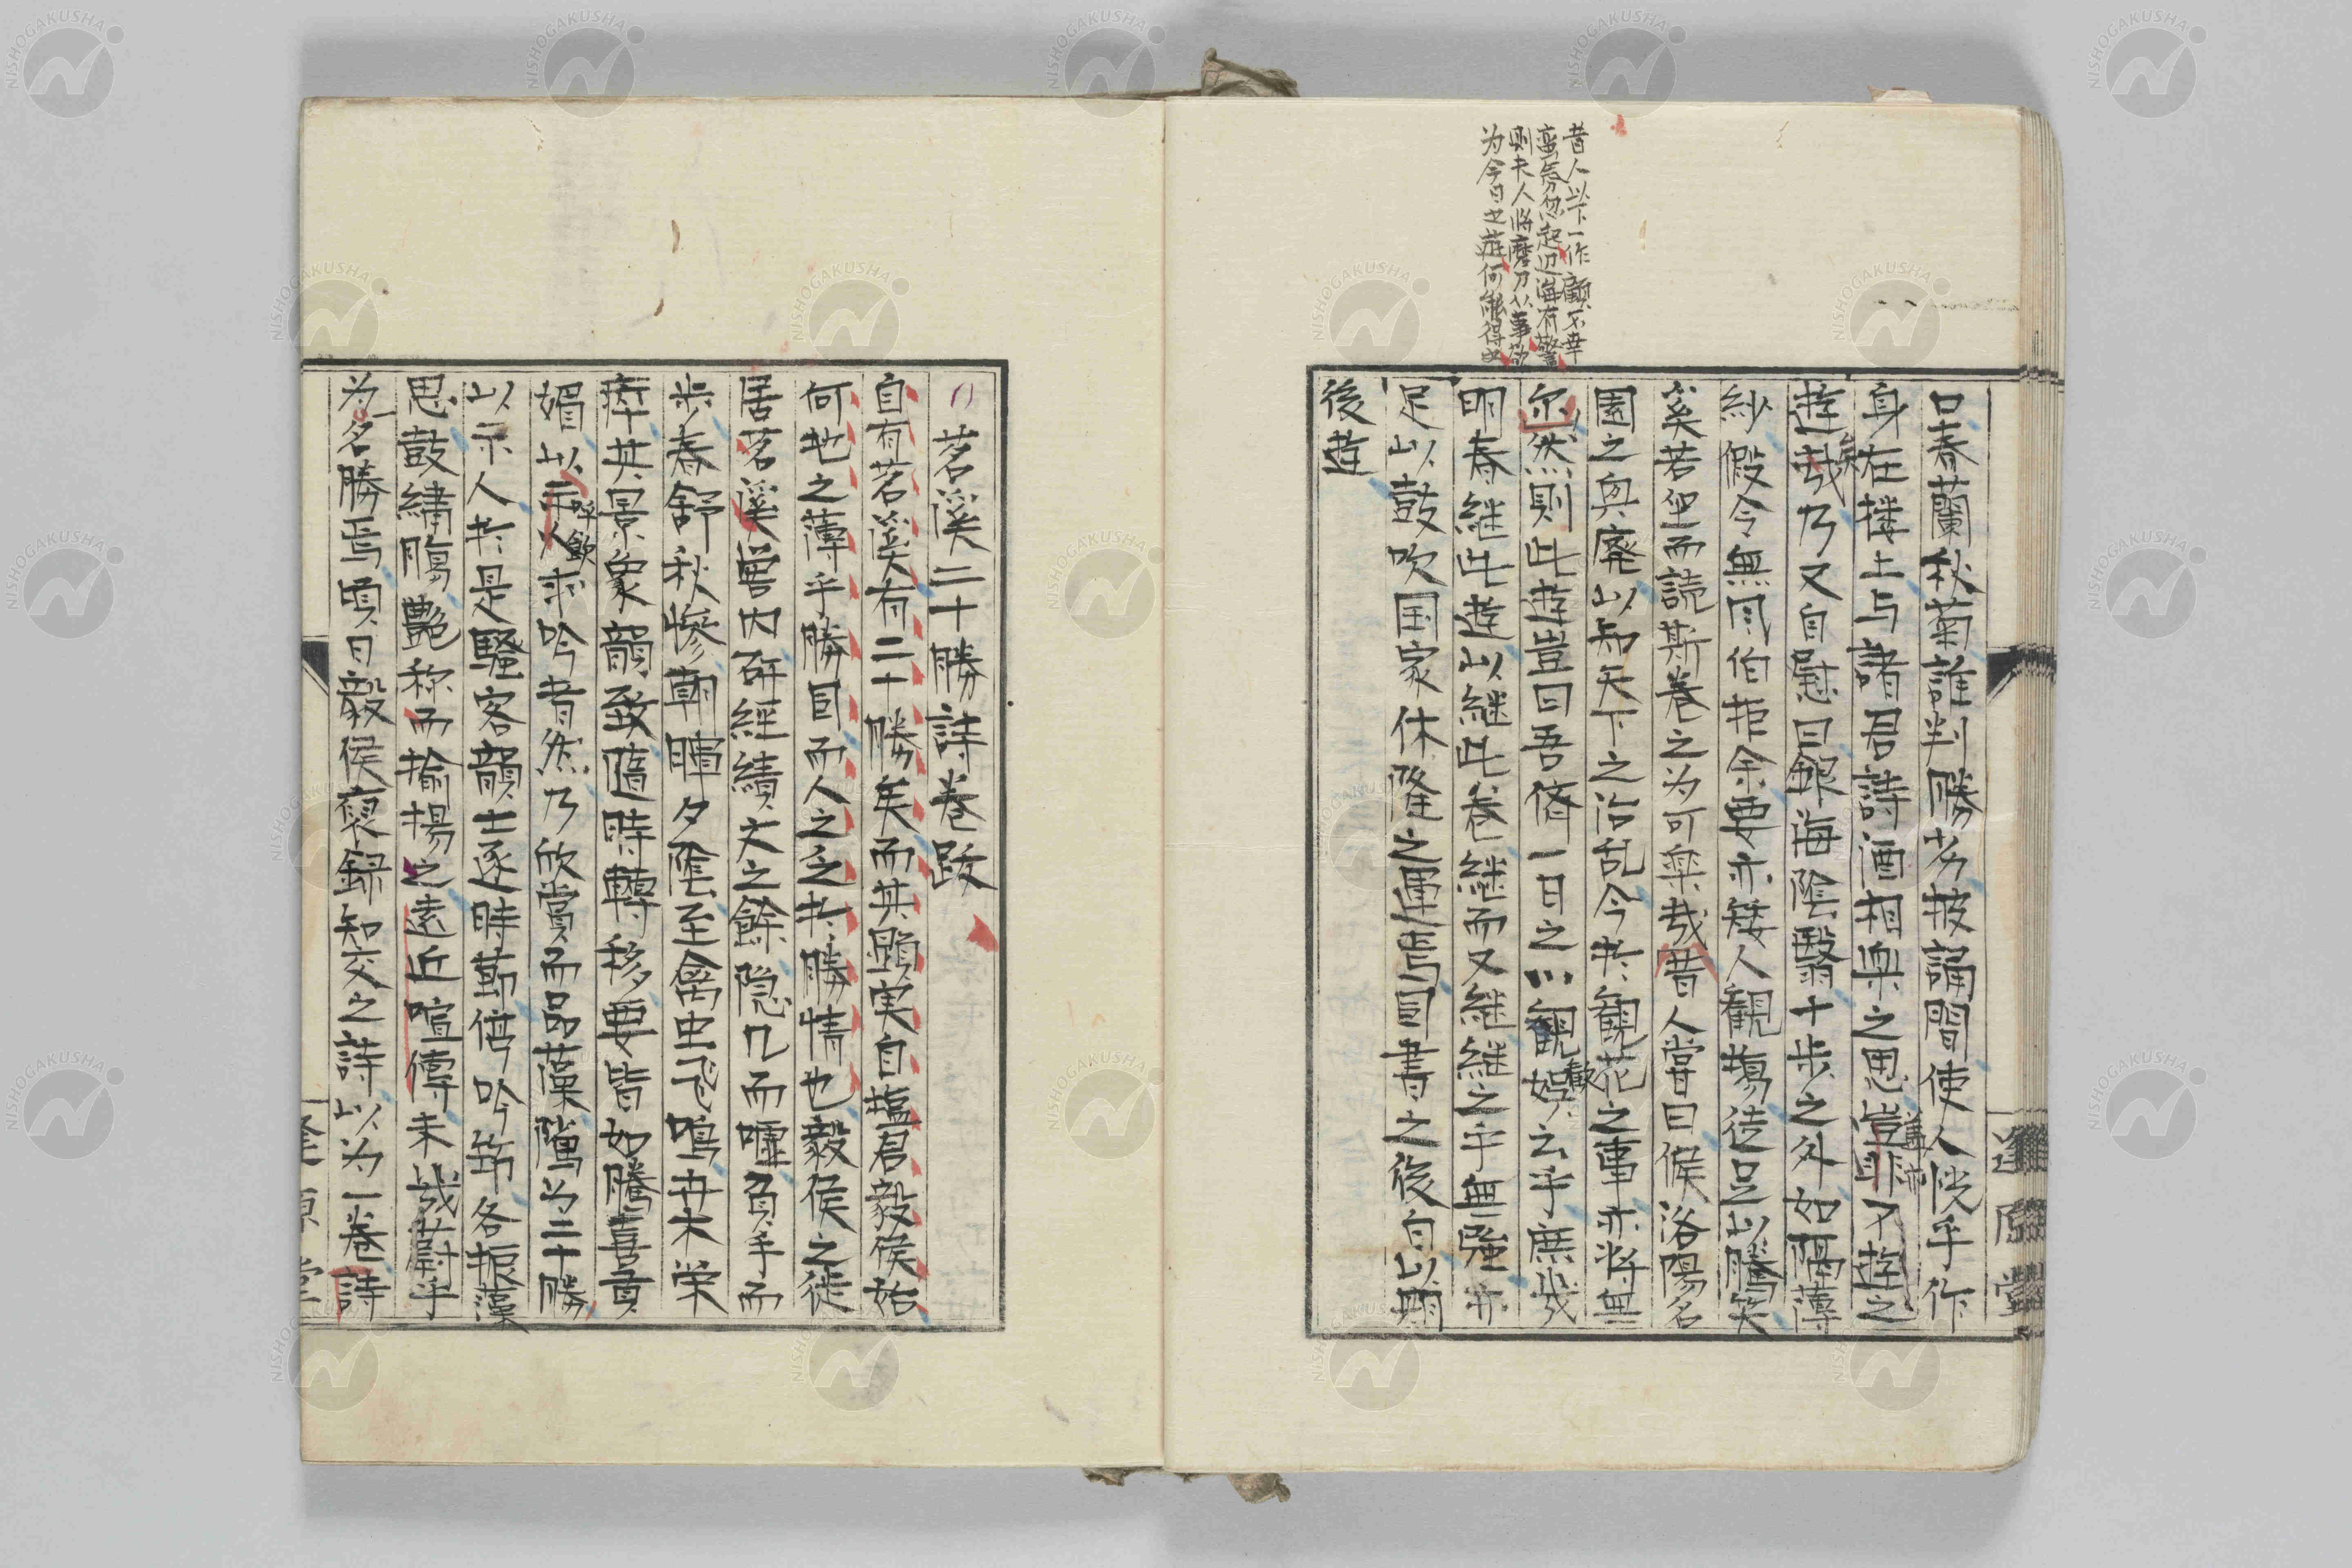 昔人以下一作顧不幸
蛮氛忽起辺海有警
則夫人将磨刀从事欲
为今日之遊何能得也
口春蘭秋菊誰判勝劣披誦間使人恍乎作
身在楼上与諸君詩酒相樂之思豈非又遊之
遊哉乃又自慰曰銀海陰翳十歩之外如隔薄
紗假令無同伯拒余要亦矮人観場徒足以騰笑
奚若坐而読斯巻之为可楽哉昔人嘗曰候洛陽名
園之興廃以知天下之治乱今此観花之事亦将無
尓然則此遊豈曰吾儕一日之観娯云乎庶哉
歓
明春継此遊以継此巻継而又継継之乎無騒亦
足以鼓吹国家休隆之運焉因書之後自以期
後遊
逢原堂
茗溪二十勝詩巻跋
自有茗溪有二十勝矣而其顕実自塩君毅侯始
何地之薄乎勝目而人之乏此勝情也毅侯之徙
居茗溪嘗内研經績文之餘隠几而嘘負手而
歩春舒秋惨朝暉夕陰至禽虫飛鳴卉木栄
瘁其景象韻致随時轉移要皆如騰喜貢
媚以示人求吟者然乃欣賞而品藻隲为二十勝
呼飲
以示人於是騒客韻士逐時節倚吟筇各振藻
思鼓繍膓艶称而揄揚之遠近喧傳未幾蔚乎
为名勝焉頃日毅侯裒録知交之詩以为一巻詩
逢原堂
NISHOGAKUSHA